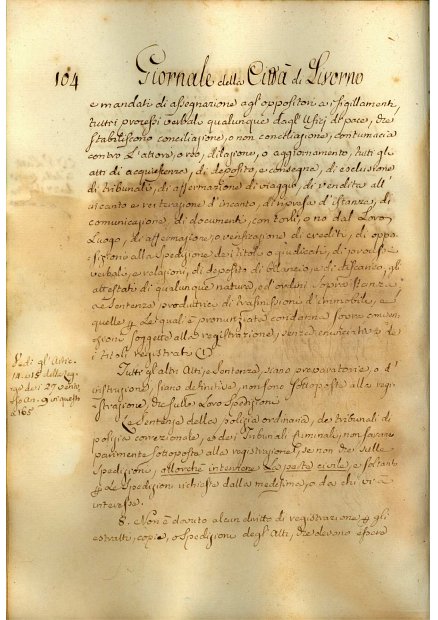 104 Giornale della Città di Livorno
e mandati di assegnazione agl'oppositori a' sigillamenti,
tutti i processi verbali qualunque dagl'Ufizj di pace, che
stabiliscono conciliazione, o non conciliazione, contumacia
contro l'attore, o reo, dilazione, o aggiornamento, tutti gli
atti di acquiescenza, di deposito, e consegna, di esclusione
di tribunali, di affermazione di viaggio, di vendita all'
incanto e reiterazione d'incanto, di ripresa d'istanza, di
comunicazione, di documenti, con togli, o no dal loro
Luogo, di affermazione, o verificazione di crediti, di oppo
sizione alla spedizione dei titoli o giudicati, di processi
verbali, e relazioni, di deposito di bilancio, e di discanzo, gli
attestati di qualunque natura, ed ordini sopra istanza
e Sentenza produttrice di trasmissione d'immobile, e
quelle per le quali è pronunziata condanna sopra conven
zioni soggette alla registrazione, senza enunciativa de
i titoli registrati (1)
Tutti gl'altri Atti, e Sentenze, siano preparatorie, o d'
istruzione, siano definitive, non sono sottoposte alla regi
strazione, che sulle loro spedizioni
Le Sentenze della polizia ordinaria, de' tribunali di
polizia correzionale, e dei Tribunali criminali, non saranno
parimente sottoposte alla registrazione, se non che sulle
spedizioni, allorchè interviene la parte civile, e soltanto
per le spedizioni richieste dalla medesima, o da chi vi è
interesse.
8. Non è dovuto alcun diritto di registrazione per gli
estratti, copie, o spedizioni degli Atti, che devono essere
Vedi gl'Artic.
14. e 15 della Leg
ge dei 27 vento
so An. 9 in questo
a 165